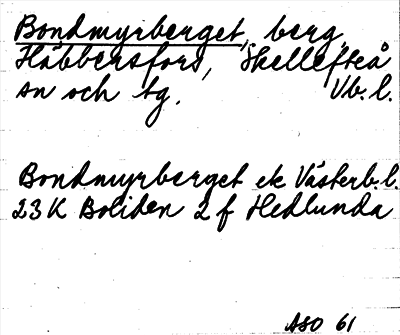 Bondmyrberget, berg,
Håbbersfors, Skellefteå
sn och tg. Vb. l.
Bondmyrberget ek Västerb. l.
23 K Boliden 2 f Hedlunda
ASO 61